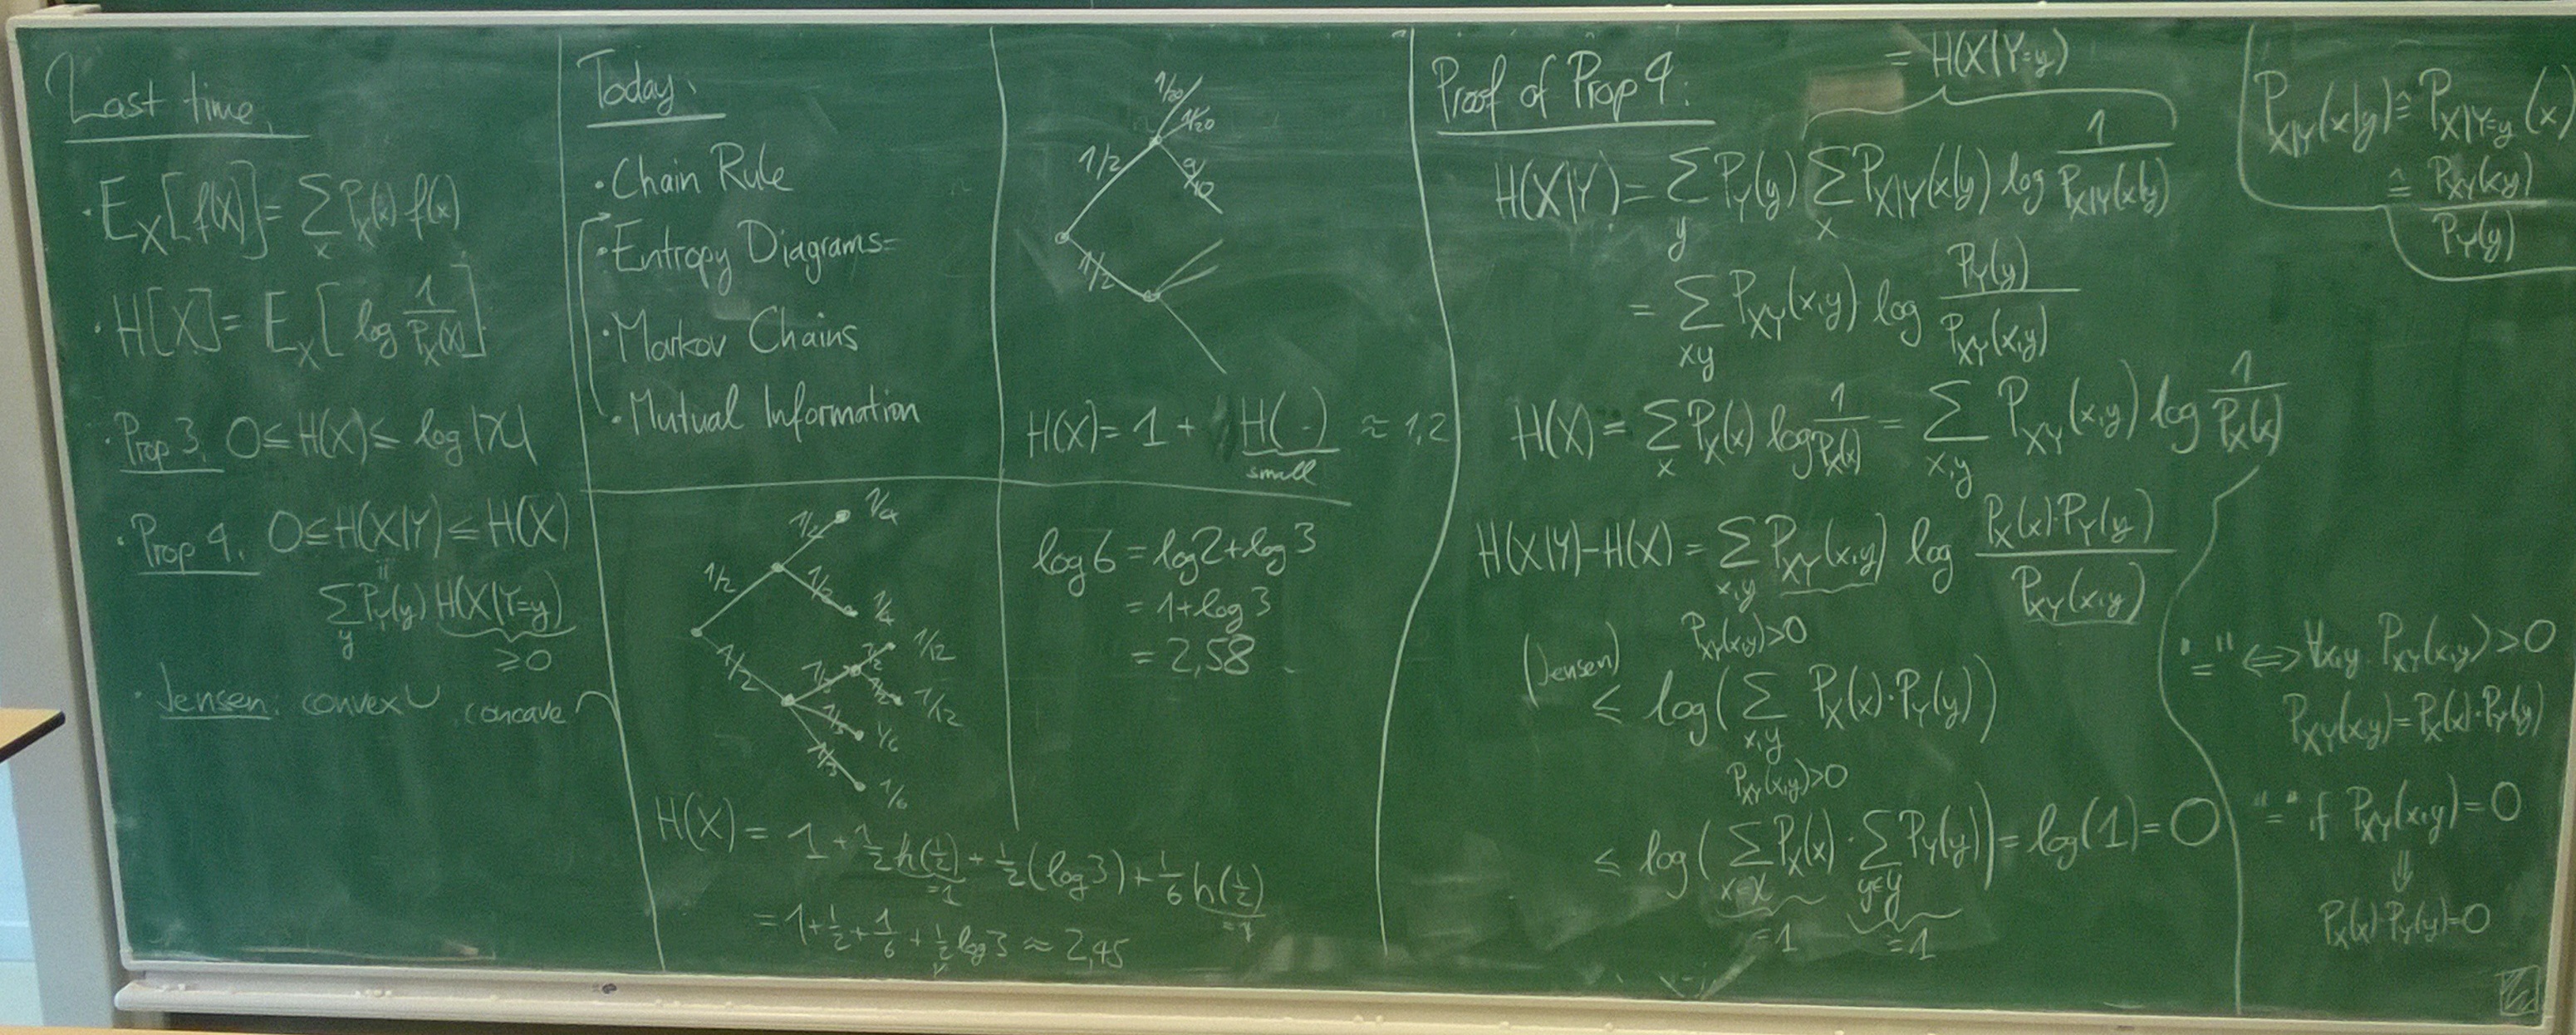 Last time:
· E_X[f(X)] = ∑_x P_X(x) f(x)
· H[X] = E_X[log 1/P_X(X)]
· Prop 3. 0 ≤ H(X) ≤ log |𝒳|
· Prop 4. 0 ≤ H(X|Y) ≤ H(X)
"
∑_y P_Y(y) H(X|Y=y)
≥ 0
· Jensen: convex ∪, concave ∩
Today:
· Chain Rule
· Entropy Diagrams
· Markov Chains
· Mutual Information
1/2 1/4
1/2
1/2 1/4
1/2 1/12
1/2 1/3 1/2 1/12
1/3 1/6
1/3 1/6
H(X) = 1 + 1/2 h(1/2) + 1/2 (log 3) + 1/6 h(1/2)
=1 =1
= 1 + 1/2 + 1/6 + 1/2 log 3 ≈ 2,45
1/20
1/20
1/2
9/10
1/2
H(X) = 1 + H(·) ≈ 1,2
small
log 6 = log 2 + log 3
= 1 + log 3
= 2,58
Proof of Prop 4:
= H(X|Y=y)
H(X|Y) = ∑_y P_Y(y) ∑_x P_{X|Y}(x|y) log 1/P_{X|Y}(x|y)
= ∑_{xy} P_{XY}(x,y) · log P_Y(y)/P_{XY}(x,y)
H(X) = ∑_x P_X(x) log 1/P_X(x) = ∑_{x,y} P_{XY}(x,y) log 1/P_X(x)
H(X|Y) - H(X) = ∑_{x,y} P_{XY}(x,y) log P_X(x)·P_Y(y)/P_{XY}(x,y)
P_{XY}(x,y)>0
(Jensen)
≤ log(∑_{x,y} P_X(x)·P_Y(y))
P_{XY}(x,y)>0
≤ log(∑_{x∈𝒳} P_X(x) · ∑_{y∈𝒴} P_Y(y)) = log(1) = 0
=1 =1
P_{X|Y}(x|y) ≙ P_{X|Y=y}(x)
≙ P_{XY}(x,y)/P_Y(y)
"=" ⇔ ∀x,y. P_{XY}(x,y) > 0
P_{XY}(x,y) = P_X(x)·P_Y(y)
"=" if P_{XY}(x,y) = 0
⇓
P_X(x)·P_Y(y) = 0